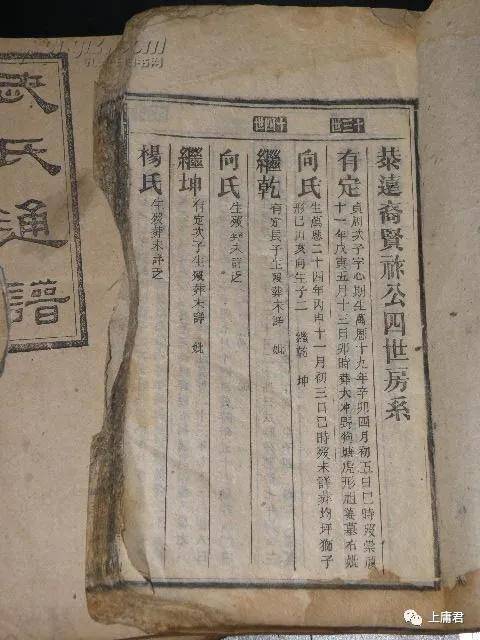 十三世
十四世
恭遠裔賢祿公四世房系
有定
貞周次子字心期生萬曆十九年辛卯四月初五日巳時歿崇禎
十一年戊寅五月十三日卯時葬大冲野狗塘虎形祖墓右妣
向氏
生萬曆二十四年丙申十一月初三日巳時歿未詳葬均坪獅子
形巳山亥向生子二 繼乾 坤
繼乾
有定長子生歿葬未詳 妣
向氏
生歿葬未詳乏
繼坤
有定次子生歿葬未詳 妣
楊氏
生歿葬未詳乏
武氏通譜
上庸君